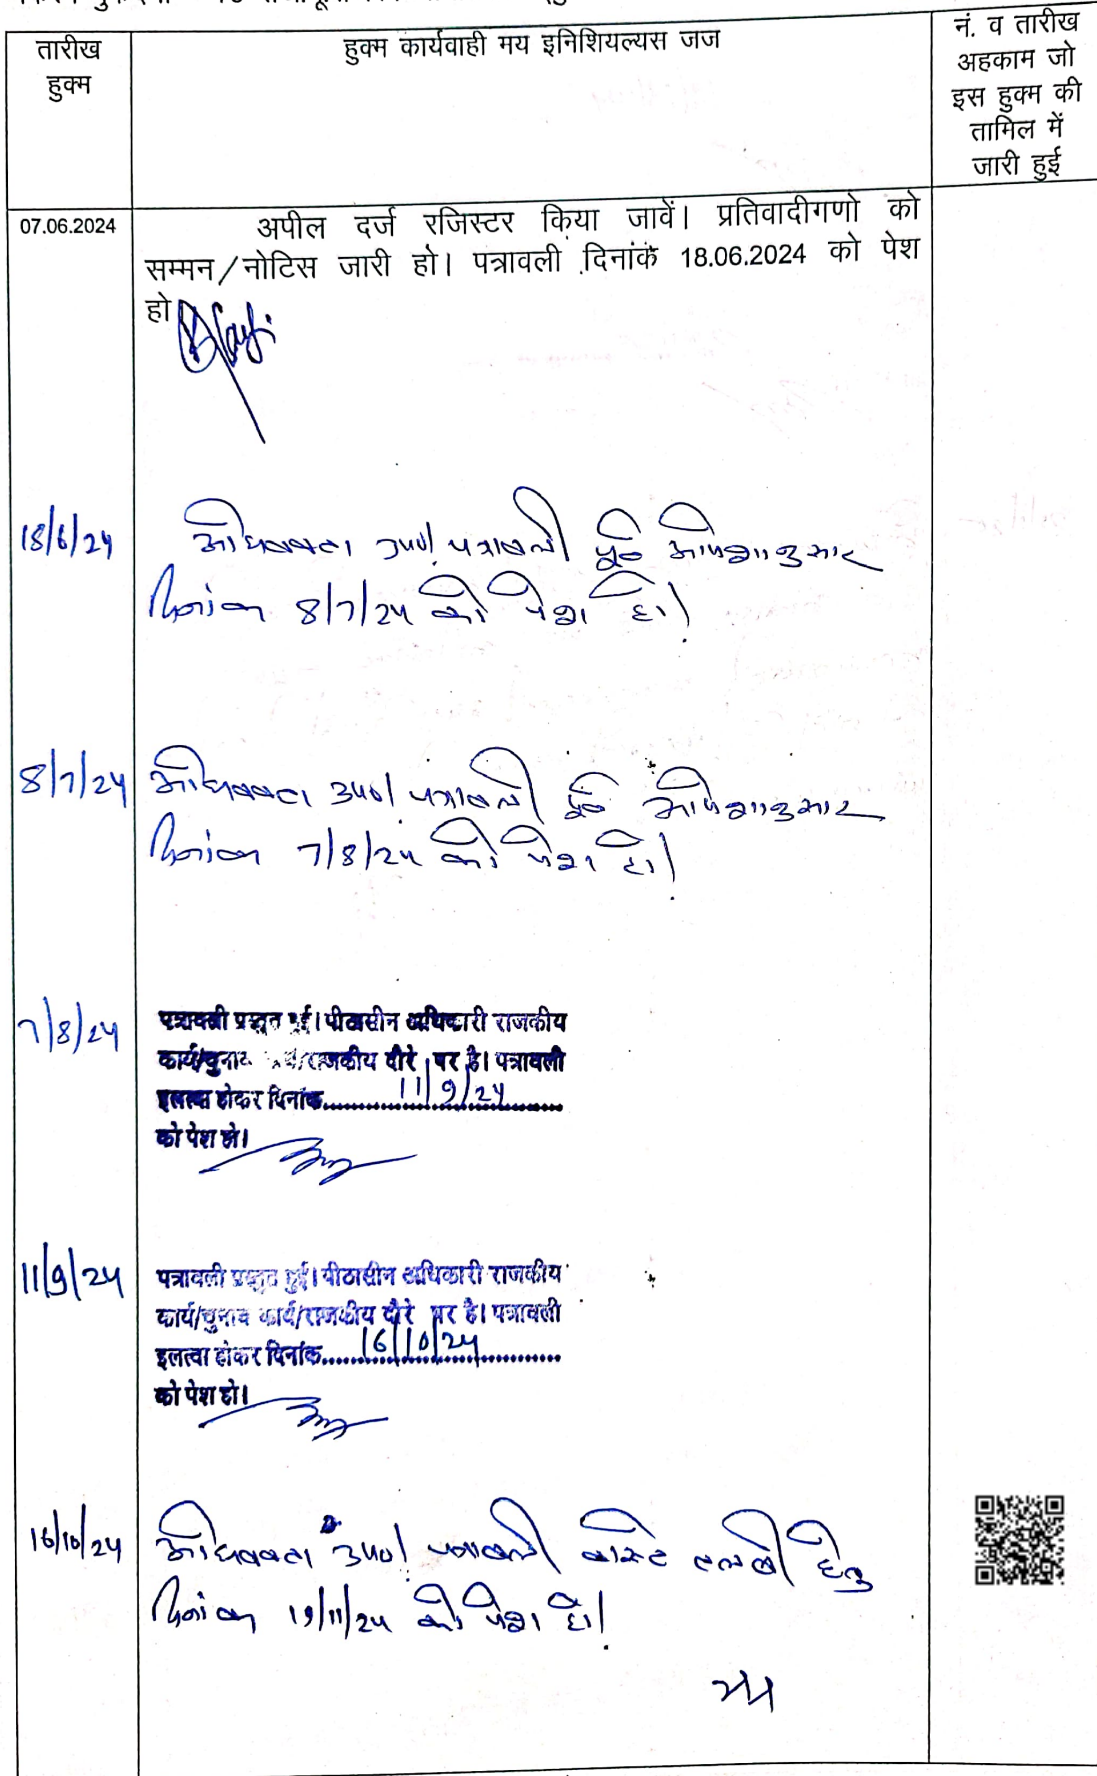 तारीख
हुक्म
हुक्म कार्यवाही मय इनिशियल्यस जज
नं. व तारीख
अहकाम जो
इस हुक्म की
तामिल में
जारी हुई
07.06.2024
अपील दर्ज रजिस्टर किया जावें। प्रतिवादीगणो को
सम्मन/नोटिस जारी हो। पत्रावली दिनांक 18.06.2024 को पेश
हो
18/6/24
अधिवक्ता उप०। पत्रावली पूर्व आदेशानुसार
दिनांक 8/7/24 को पेश हो।
8/7/24
अधिवक्ता उप०। पत्रावली पूर्व आदेशानुसार
दिनांक 7/8/24 को पेश हो।
7/8/24
पत्रावली प्रस्तुत हुई। पीठासीन अधिकारी राजकीय
कार्य/चुनाव कार्य/राजकीय दौरे पर है। पत्रावली
इलत्वा होकर दिनांक 11/9/24
को पेश हो।
11/9/24
पत्रावली प्रस्तुत हुई। पीठासीन अधिकारी राजकीय
कार्य/चुनाव कार्य/राजकीय दौरे पर है। पत्रावली
इलत्वा होकर दिनांक 16/10/24
को पेश हो।
16/10/24
अधिवक्ता उप०। पत्रावली वास्ते तलबी हेतु
दिनांक 19/11/24 को पेश हो।